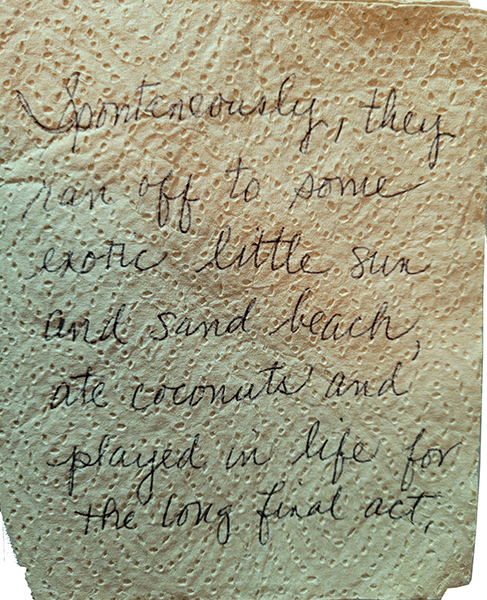 Spontaneously, they
ran off to some
exotic little sun
and sand beach,
ate coconuts and
played in life for
the long final act.